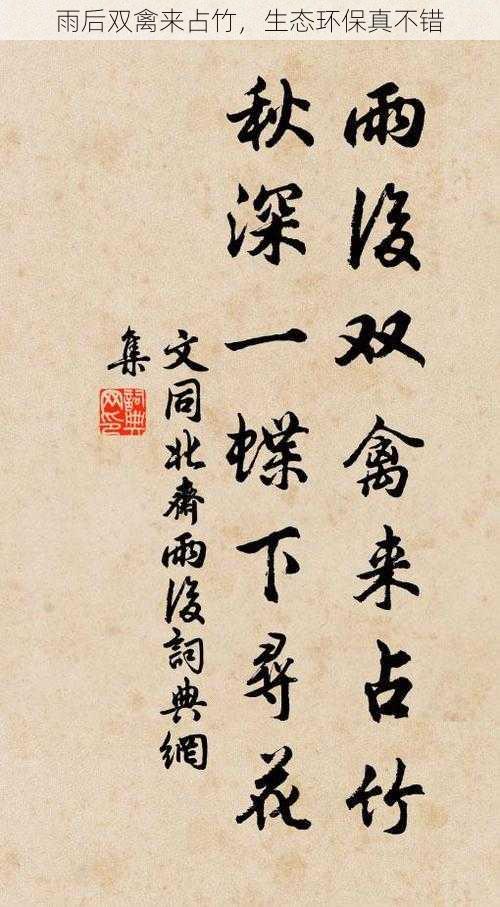 雨后双禽来占竹，生态环保真不错
雨後双禽来占竹
秋深一蝶下尋花
文同北齋雨後詞典網
集
詞典
网印